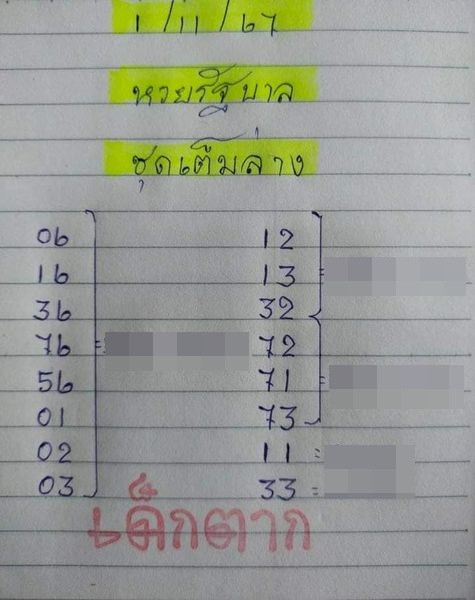 1/11/67
หวยรัฐบาล
ชุดเต็มล่าง
06 12
16 13 =
36 32
76 = 72
56 71 =
01 73
02 11 =
03 33 =
เด็กตาก